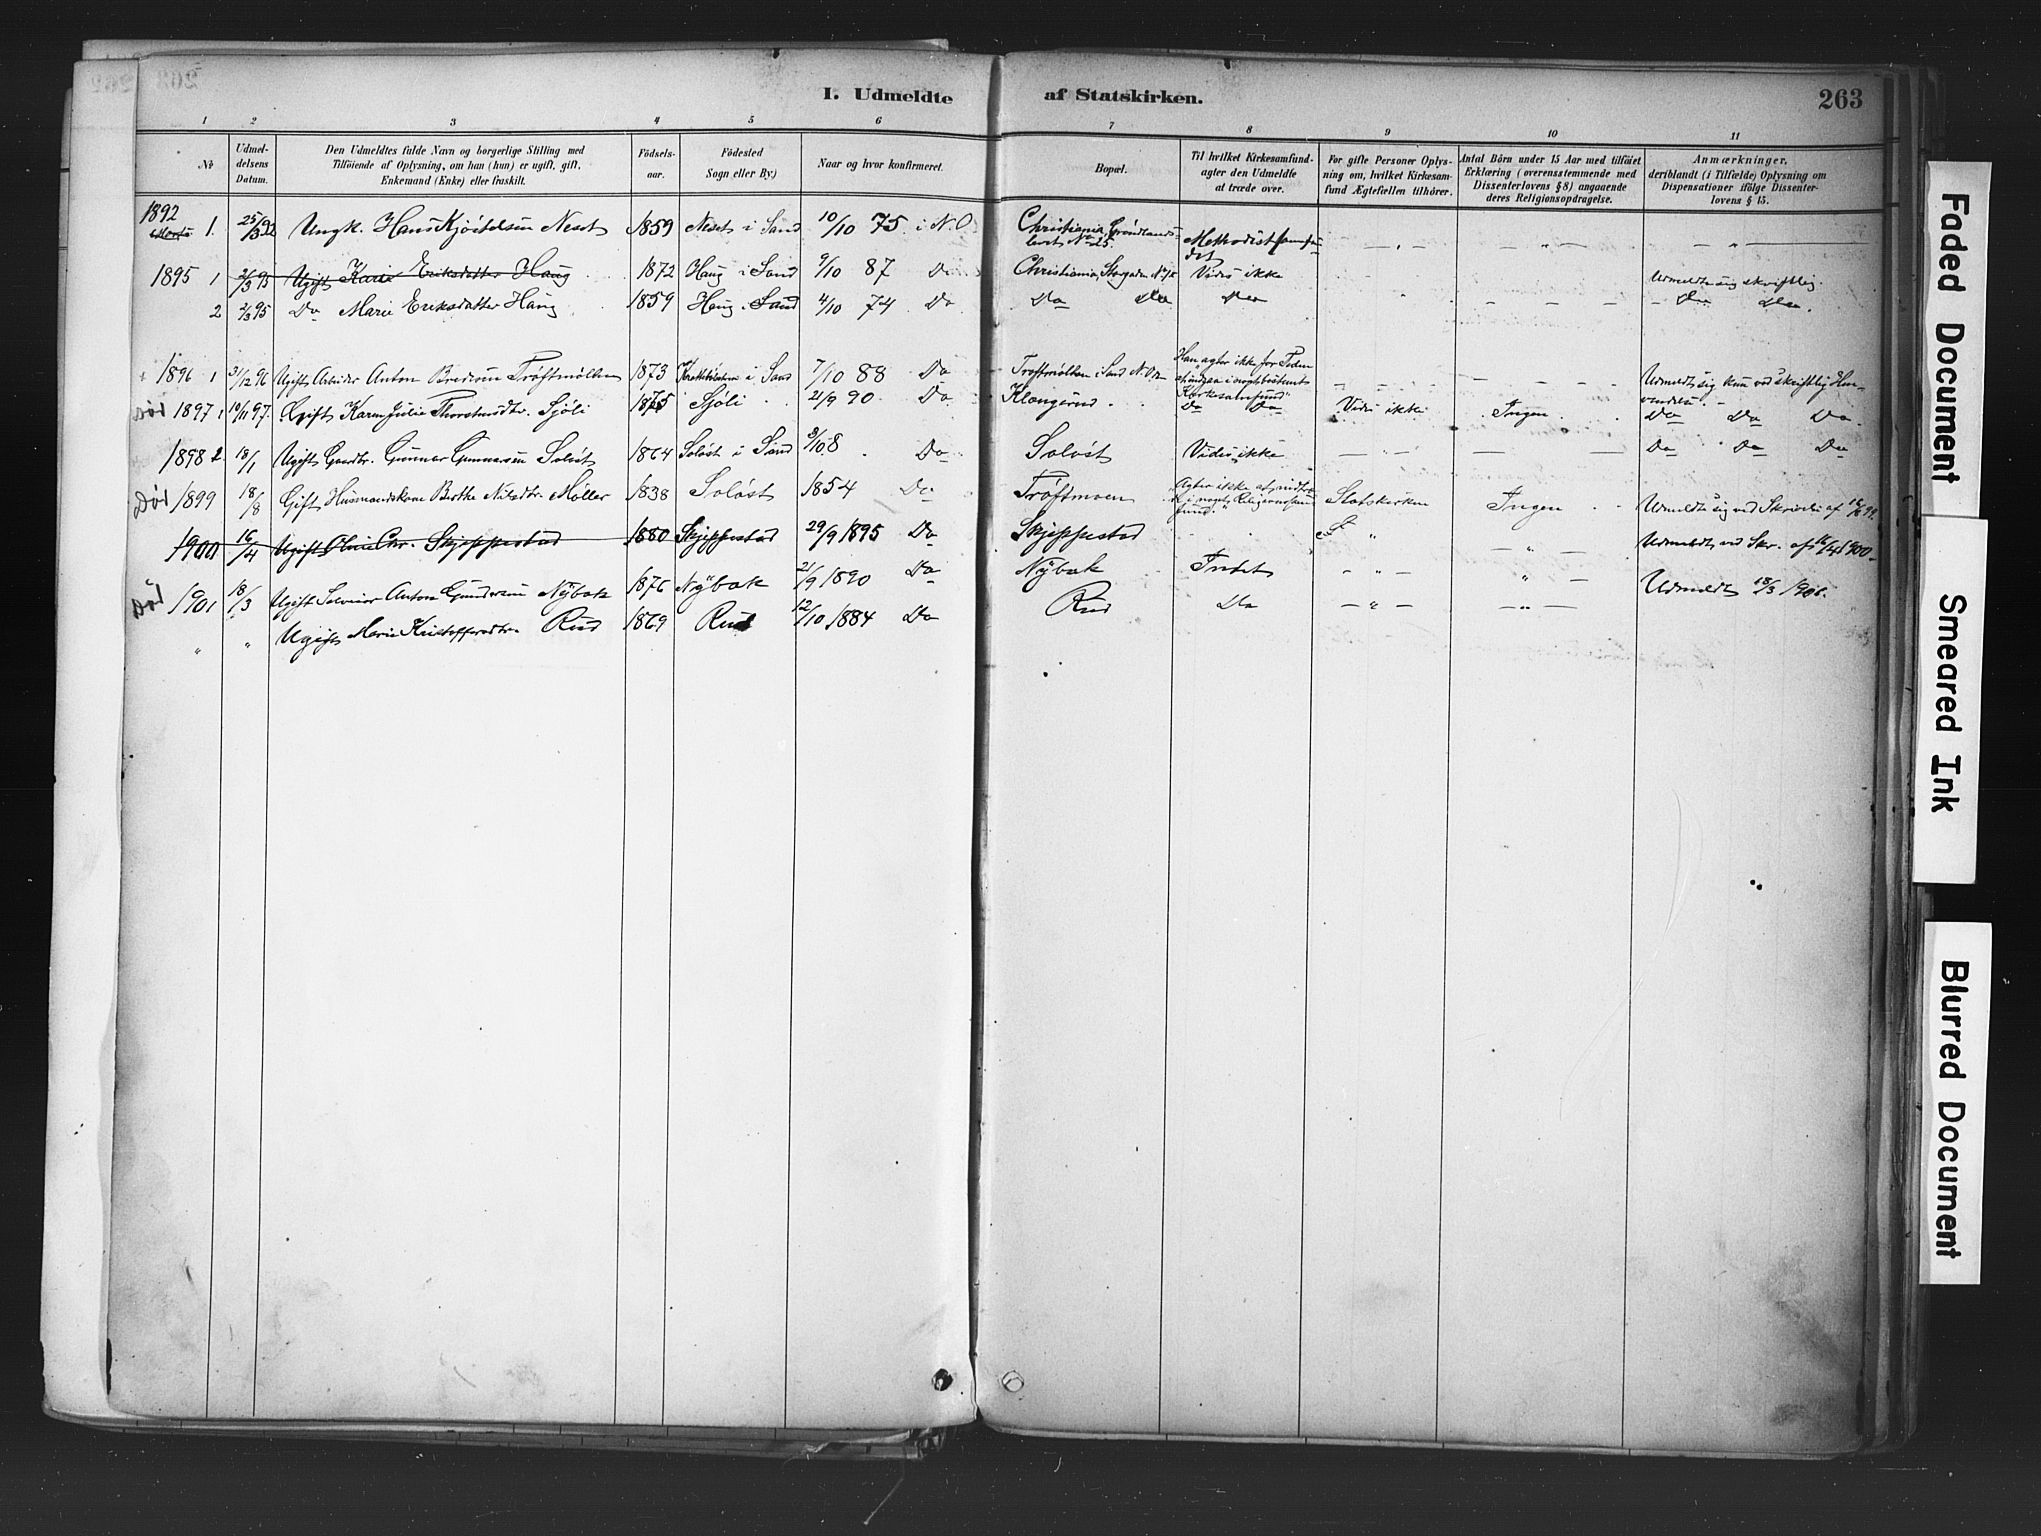 I. Udmeldte af Statskirken. 263
1 2 3 4 5 6 7 8 9 10 11
No
Udmel-
delsens
Datum.
Den Udmeldtes fulde Navn og borgerlige Stilling med
Tilföiende af Oplysning, om han (hun) er ugift, gift,
Enkemand (Enke) eller fraskilt.
Födsels-
aar.
Födested
Sogn eller By)
Naar og hvor konfirmeret.
Bopæl.
Til hvilket Kirkesamfund-
agter den Udmeldte
at træde over.
For gifte Personer Oplys-
ning om, hvilket Kirkesam-
fund Ægtefællen tilhörer.
Antal Börn under 15 Aar med tilföiet
Erklæring (overensstemmende med
Dissenterlovens § 8) angaaende
deres Religionsopdragelse.
Anmærkninger,
deriblandt (i Tilfælde) Oplysning om
Dispensationer ifölge Dissenter-
lovens § 15.
1892
1. 25/3 92 Ungk. Hans Kjöstelsen Neset 1859 Neset i Sand 10/10 75 i N.O. Christiania, Grönlands-
leret No 25. Methodistsamfun-
det
1895 1 2/3 95 Ugift Karie Eriksdatter Haug 1872 Haug i Sand 9/10 87 Do Christiania, Storgaden Vides ikke Udmeldte sig skriftlig.
2 2/3 95 Do Marie Eriksdatter Haug 1859 Haug i Sand 4/10 74 Do Do Do Do Do Do.
1896 1 31/12 96 Ugift Arbeider Anton Bredesen Tröftmöllen 1873 i Sand 7/10 88 Do Tröftmöllen i Sand N.O. Han agter ikke for Tiden
at indgaa i noget bestemt
Kirkesamfund" Udmeldt sig kun ved skriftlig Hen-
vendelse.
Död 1897 1 10/11 97. Gift Karen Julie Thorstensdtr. Sjöli 1875 Sjöli 21/9 90 Do Klangrud Do Do Vides ikke Ingen Do Do Do.
1898 2 18/1 Ugift Gaardbr. Gunnar Gunnarsen Solöst 1864 Solöst i Sand 3/10 8 Do Solöst Vides ikke Do Do Do
Död 1899 18/8 Gift Husmandskone Berthe Nilsdtr. Möller 1838 Solöst 1854 Do Tröftmoen Agter ikke at indtræ-
de i noget Religionssam-
fund." Statskirken Ingen Udmeldte sig ved Skrivelse af 18/8 99.
1900 16/4 Ugift Oline Chr. Skjeppestad 1880 Skjeppestad 29/9 1895 Do Skjeppestad Udmeldt ved Skr. af 16/4 1900.
Död 1901 18/3 Ugift Anton Gundersen Nÿbak 1876 Nÿbak 21/9 1890 Do Nÿbak Intet Udmeldt 18/3 1901.
" " Ugift Marie Kristoffersdtr. Rud 1869 Rud 12/10 1884 Do Rud Do
Faded Document
Smeared Ink
Blurred Document